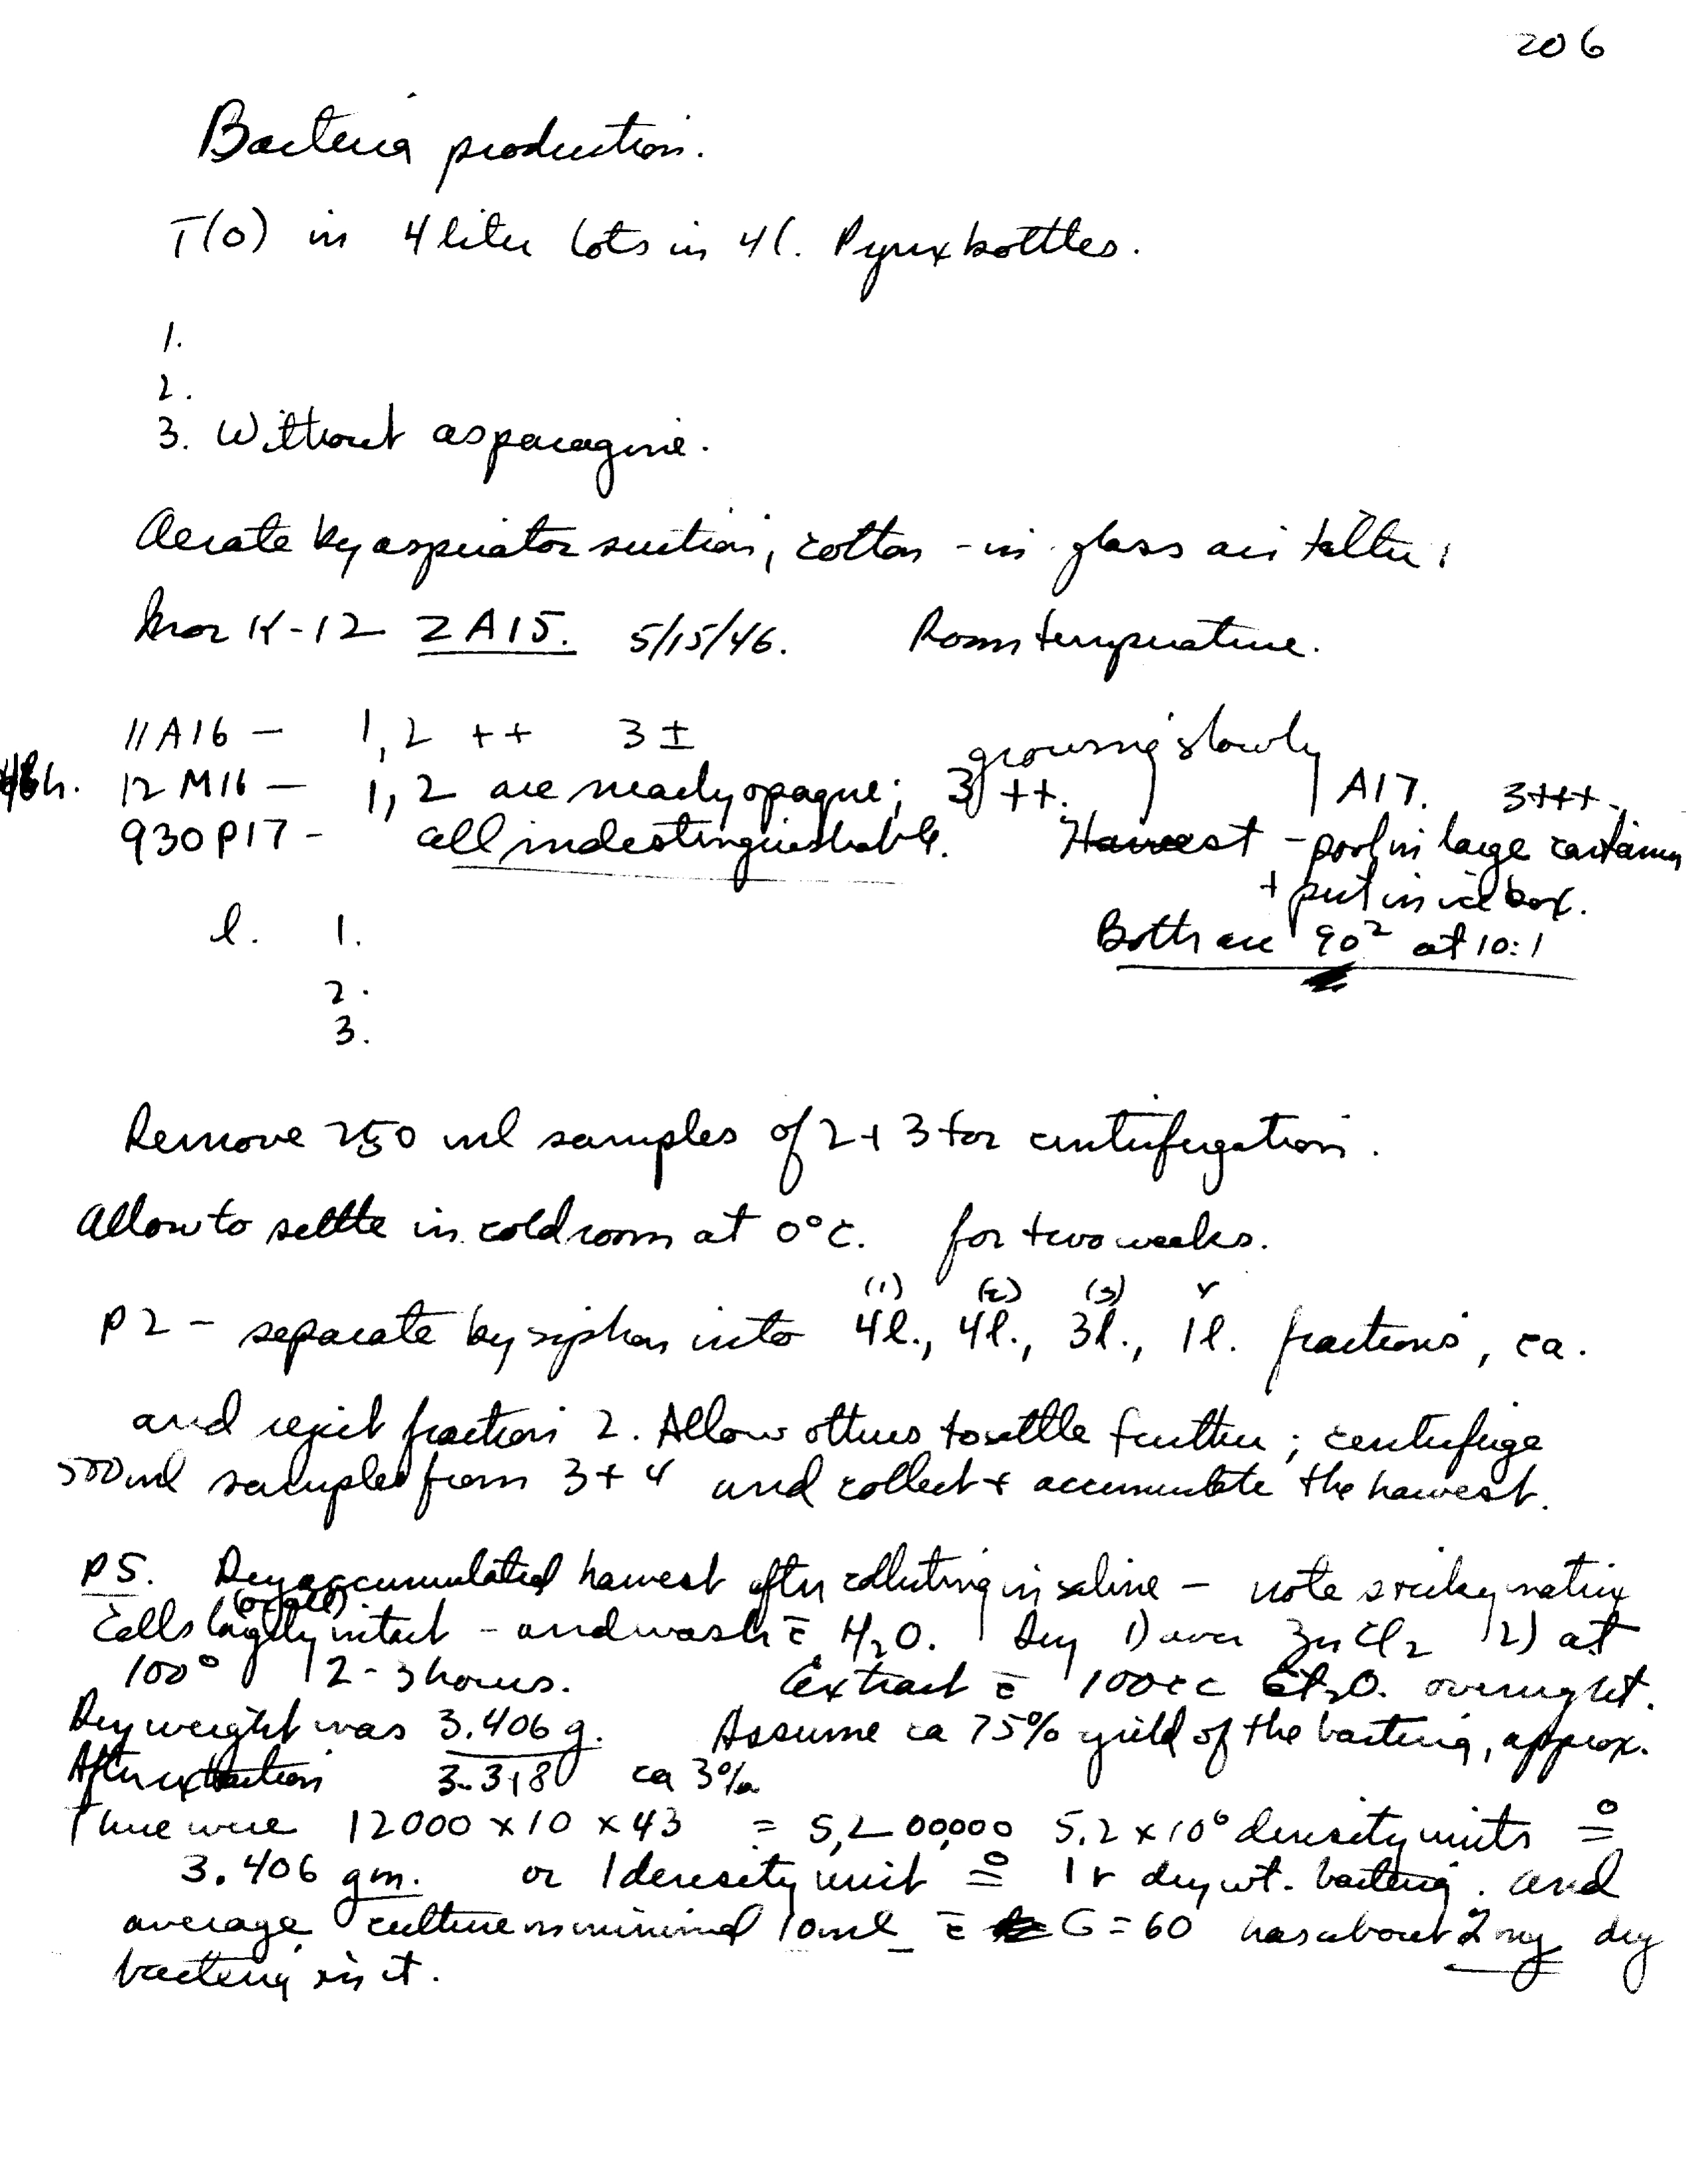 206
Bacteria production.
T(0) in 4 liter lots in 4 l. Pyrex bottles.
1.
2.
3. Without asparagine.
Aerate by aspirator suction, cotton - in glass air filter;
Inoc K-12 2A15. 5/15/46. Room temperature.
11A16 — 1, 2 ++ 3 ±
growing slowly
48h. 12 M16 — 1, 2 are nearly opaque; 3 ++. A17. 3+++.
930P17 - all indistinguishable. Harvest - pool in large container
+ put in ice box.
l. 1. Both are 90² at 10:1
2.
3.
Remove 250 ml samples of 2 + 3 for centrifugation.
Allow to settle in cold room at 0°C. for two weeks.
(1) (2) (3) 4
P2 - separate by siphon into 4l., 4l., 3l., 1l. fractions, ca.
and reject fraction 2. Allow others to settle further; centrifuge
500 ml samples from 3 + 4 and collect + accumulate the harvest.
P5. Dry accumulated harvest after collecting in saline - note sticky matrix
(or all).
Cells largely intact - and wash c̄ H₂O. Dry 1) over ZnCl₂ 2) at
100° 2-3 hours. Extract c̄ 100cc Et₂O. overnight.
Dry weight was 3.406 g. Assume ca 75% yield of the bacteria, approx.
After extraction 3.318 ca 3%
There were 12000 x 10 x 43 = 5,200,000 5.2 x 10⁶ density units ≗
3.406 gm. or 1 density unit ≗ 1 γ dry wt. bacteria. and
average culture in minimal 10ml c̄ G = 60 has about 2 mg dry
bacteria in it.